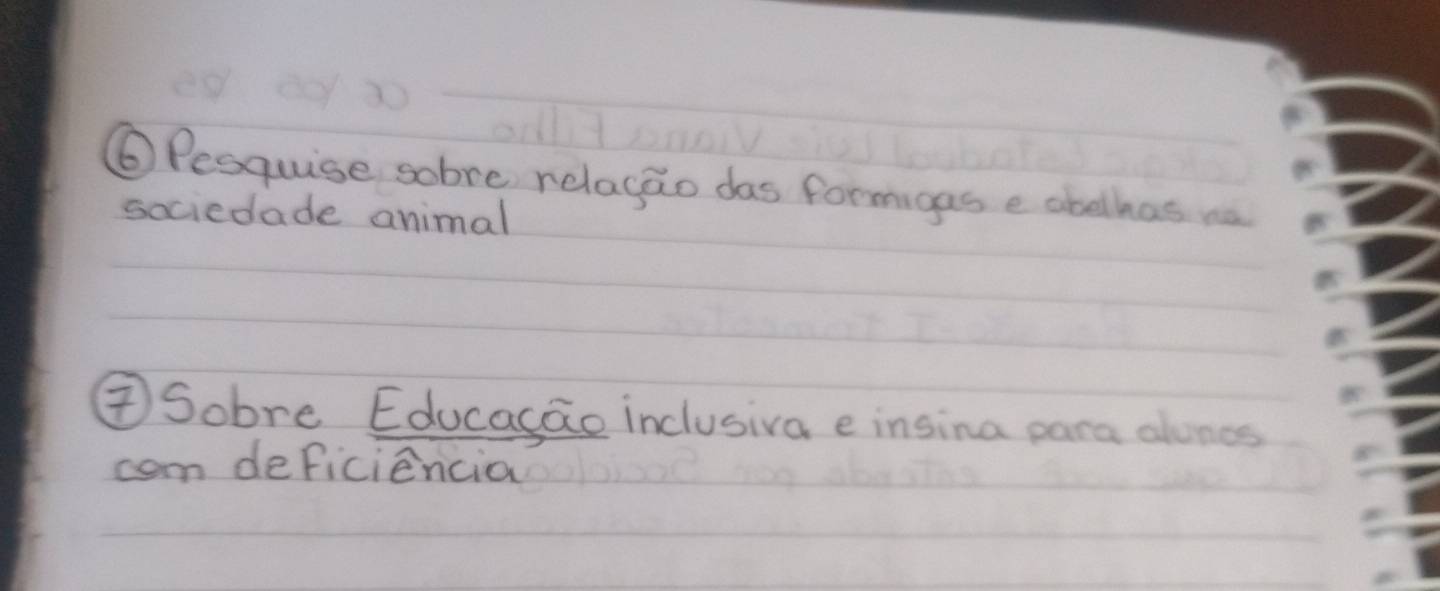 ⑥ Pesquise sobre relação das formigas e abelhas na
sociedade animal
⑦ Sobre Educação inclusiva e insina para alunos
com deficiência